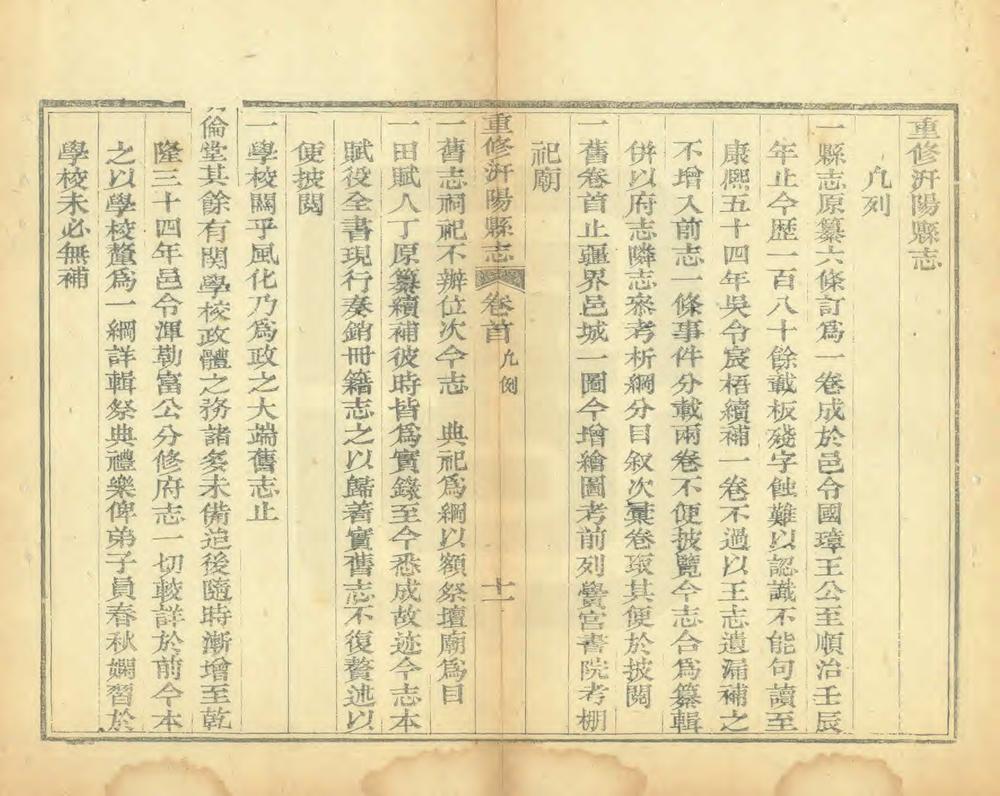 重修汧陽縣志
凡列
一縣志原纂六條訂爲一卷成於邑令國璋王公至順治壬辰
年止今歷一百八十餘載板殘字蝕難以認識不能句讀至
康熙五十四年吳令宸梧續補一卷不過以王志遺漏補之
不增入前志一條事件分載兩卷不便披覽今志合爲纂輯
併以府志隣志叅考析綱分目叙次彙卷取其便於披閱
一舊卷首止疆界邑城一圖今增繪圖考前列黌宮書院考棚
祀廟
重修汧陽縣志 卷首 凡例 十一
一舊志祠祀不辦位次今志 典祀爲綱以額祭壇廟爲目
一田賦人丁原纂續補彼時皆爲實錄至今悉成故迹今志本
賦役全書現行奏銷冊籍志之以歸着實舊志不復贅述以
便披閱
一學校關乎風化乃爲政之大端舊志止
倫堂其餘有関學校政體之務諸多未備迨後隨時漸增至乾
隆三十四年邑令渾勒富公分修府志一切較詳於前今本
之以學校釐爲一綱詳輯祭典禮樂俾弟子員春秋嫻習於
學校未必無補